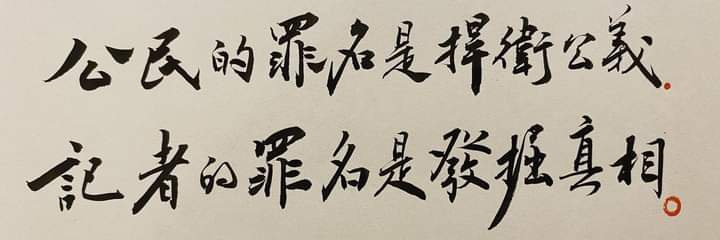 公民的罪名是捍衛公義.
記者的罪名是發掘真相。